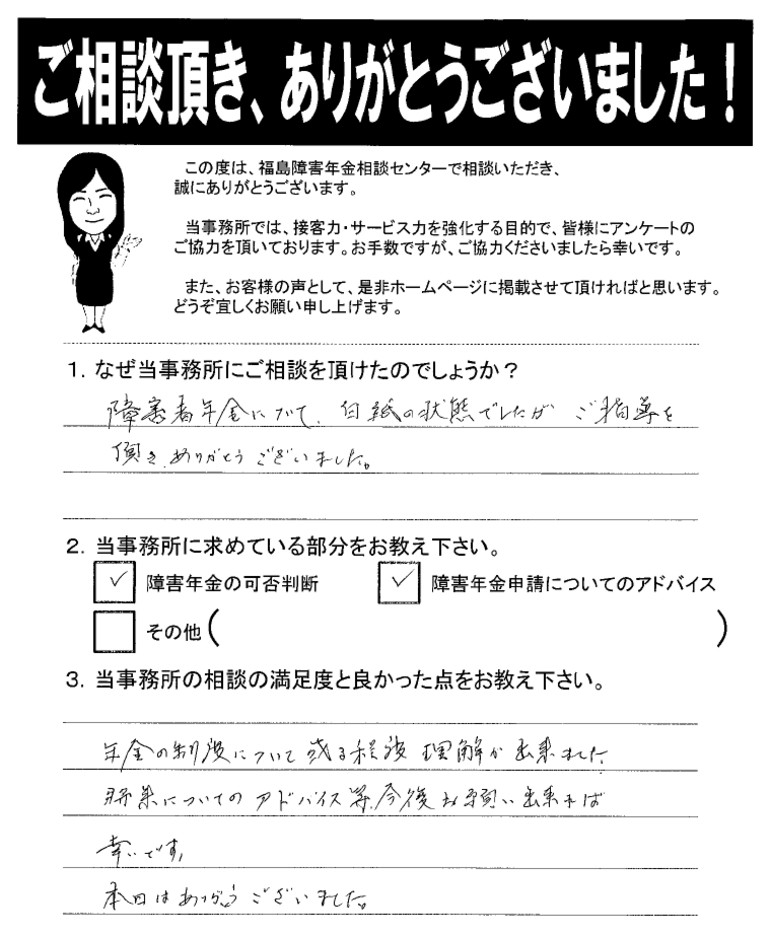 ご相談頂き、ありがとうございました！
この度は、福島障害年金相談センターで相談いただき、
誠にありがとうございます。
当事務所では、接客力・サービス力を強化する目的で、皆様にアンケートの
ご協力を頂いております。お手数ですが、ご協力くださいましたら幸いです。
また、お客様の声として、是非ホームページに掲載させて頂ければと思います。
どうぞ宜しくお願い申し上げます。
1. なぜ当事務所にご相談を頂けたのでしょうか？
障害者年金について、白紙の状態でしたが ご指導を
頂き、ありがとうございました。
2. 当事務所に求めている部分をお教え下さい。
✓ 障害年金の可否判断 ✓ 障害年金申請についてのアドバイス
その他（ ）
3. 当事務所の相談の満足度と良かった点をお教え下さい。
年金の制度について或る程度理解が出来ました
将来についてのアドバイス等、今後お願い出来れば
幸いです。
本日はありがとうございました。